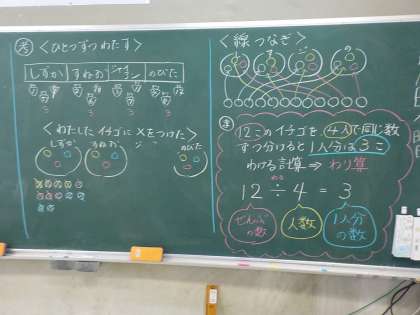 考 <ひとつずつわたす>
しずか すねお ジャイアン のびた
3 3 3 3
<わたしたイチゴに×をつけた>
しずか すねお ジ のびた
<線つなぎ>
し す ジ の
ま 12このイチゴを4人で同じ数
ずつ分けると1人分は3こ
わける計算⇒わり算
わる
12÷4=3
ぜんぶの数 人数 1人分の数